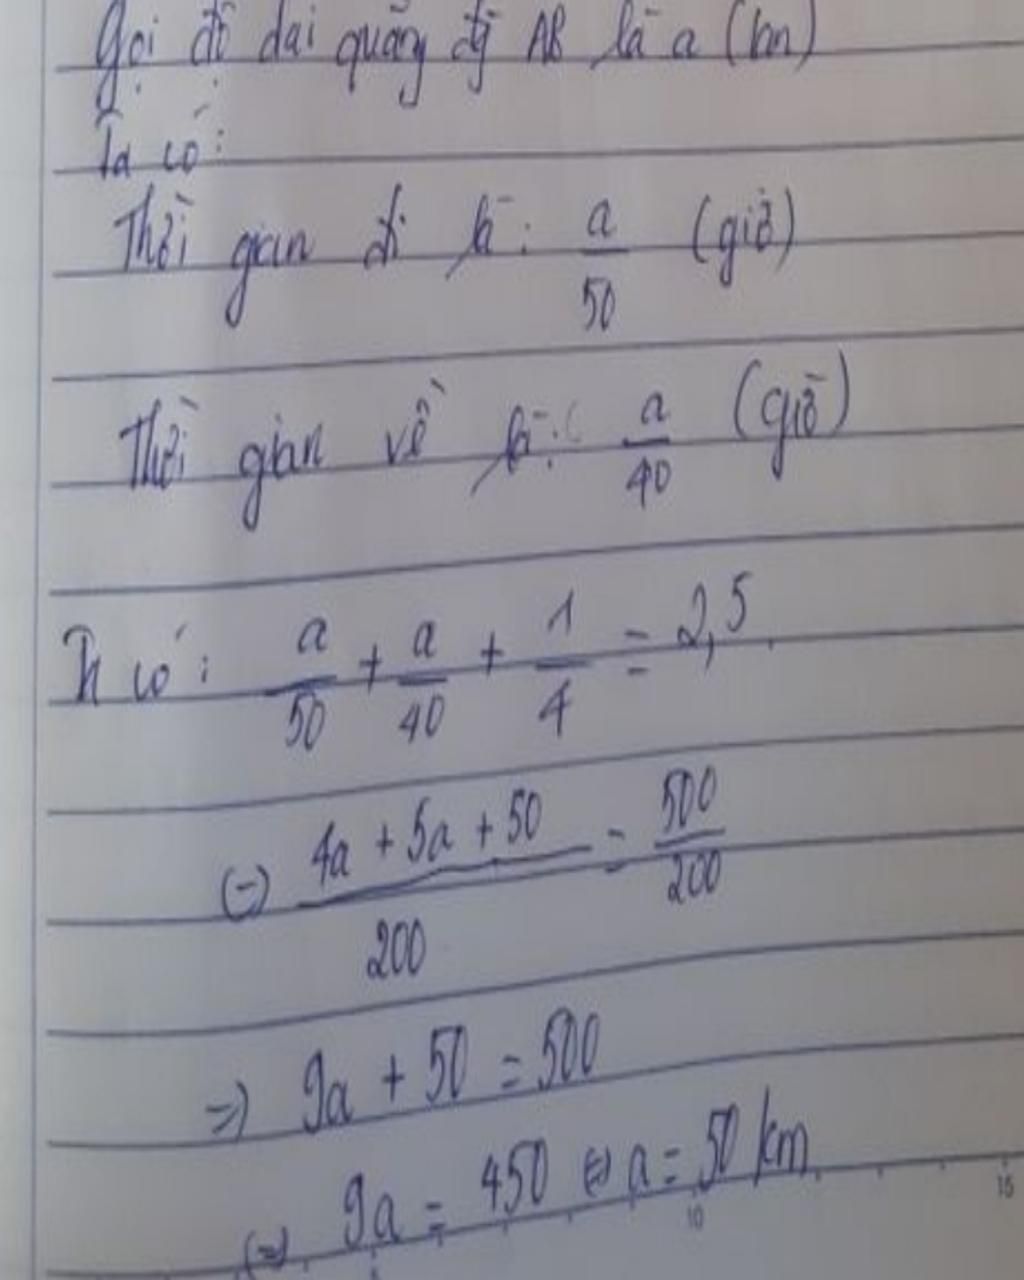 Gọi độ dài quãng đg AB là a (km)
Ta có:
Thời gian đi là: a/50 (giờ)
Thời gian về là: a/40 (giờ)
Ta có: a/50 + a/40 + 1/4 = 2,5
(=) (4a + 5a + 50)/200 = 500/200
=) 9a + 50 = 500
(=) 9a = 450 (=) a = 50 km
10 15